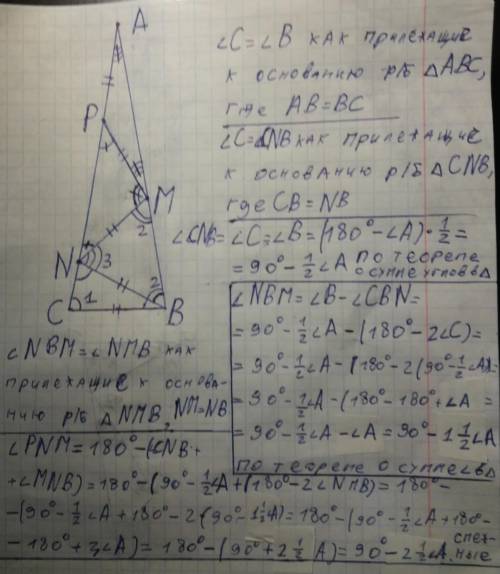 A
P
M
2
N 3
2
C 1 B
∠C=∠B как прилежащие
к основанию р/б △ABC,
где AB=BC
∠C=∠CNB как прилежащие
к основанию р/б △CNB,
где CB=NB
∠CNB=∠C=∠B=(180°-∠A)·1/2=
=90°-1/2∠A по теореме
о сумме углов в △
∠NBM=∠B-∠CBN=
=90°-1/2∠A-(180°-2∠C)=
=90°-1/2∠A-(180°-2(90°-1/2∠A))=
=90°-1/2∠A-(180°-180°+∠A=
=90°-1/2∠A-∠A=90°-1 1/2∠A
∠NBM=∠NMB как
прилежащие к основа-
нию р/б △NMB, NM=NB
∠PNM=180°-(∠CNB+
+∠MNB)=180°-(90°-1/2∠A+(180°-2∠NMB)=180°-
-(90°-1/2∠A+180°-2(90°-1 1/2∠A)=180°-(90°-1/2∠A+180°-
-180°+3∠A)=180°-(90°+2 1/2∠A)=90°-2 1/2∠A
по теореме о сумме ∠ в △
смеж-
ные